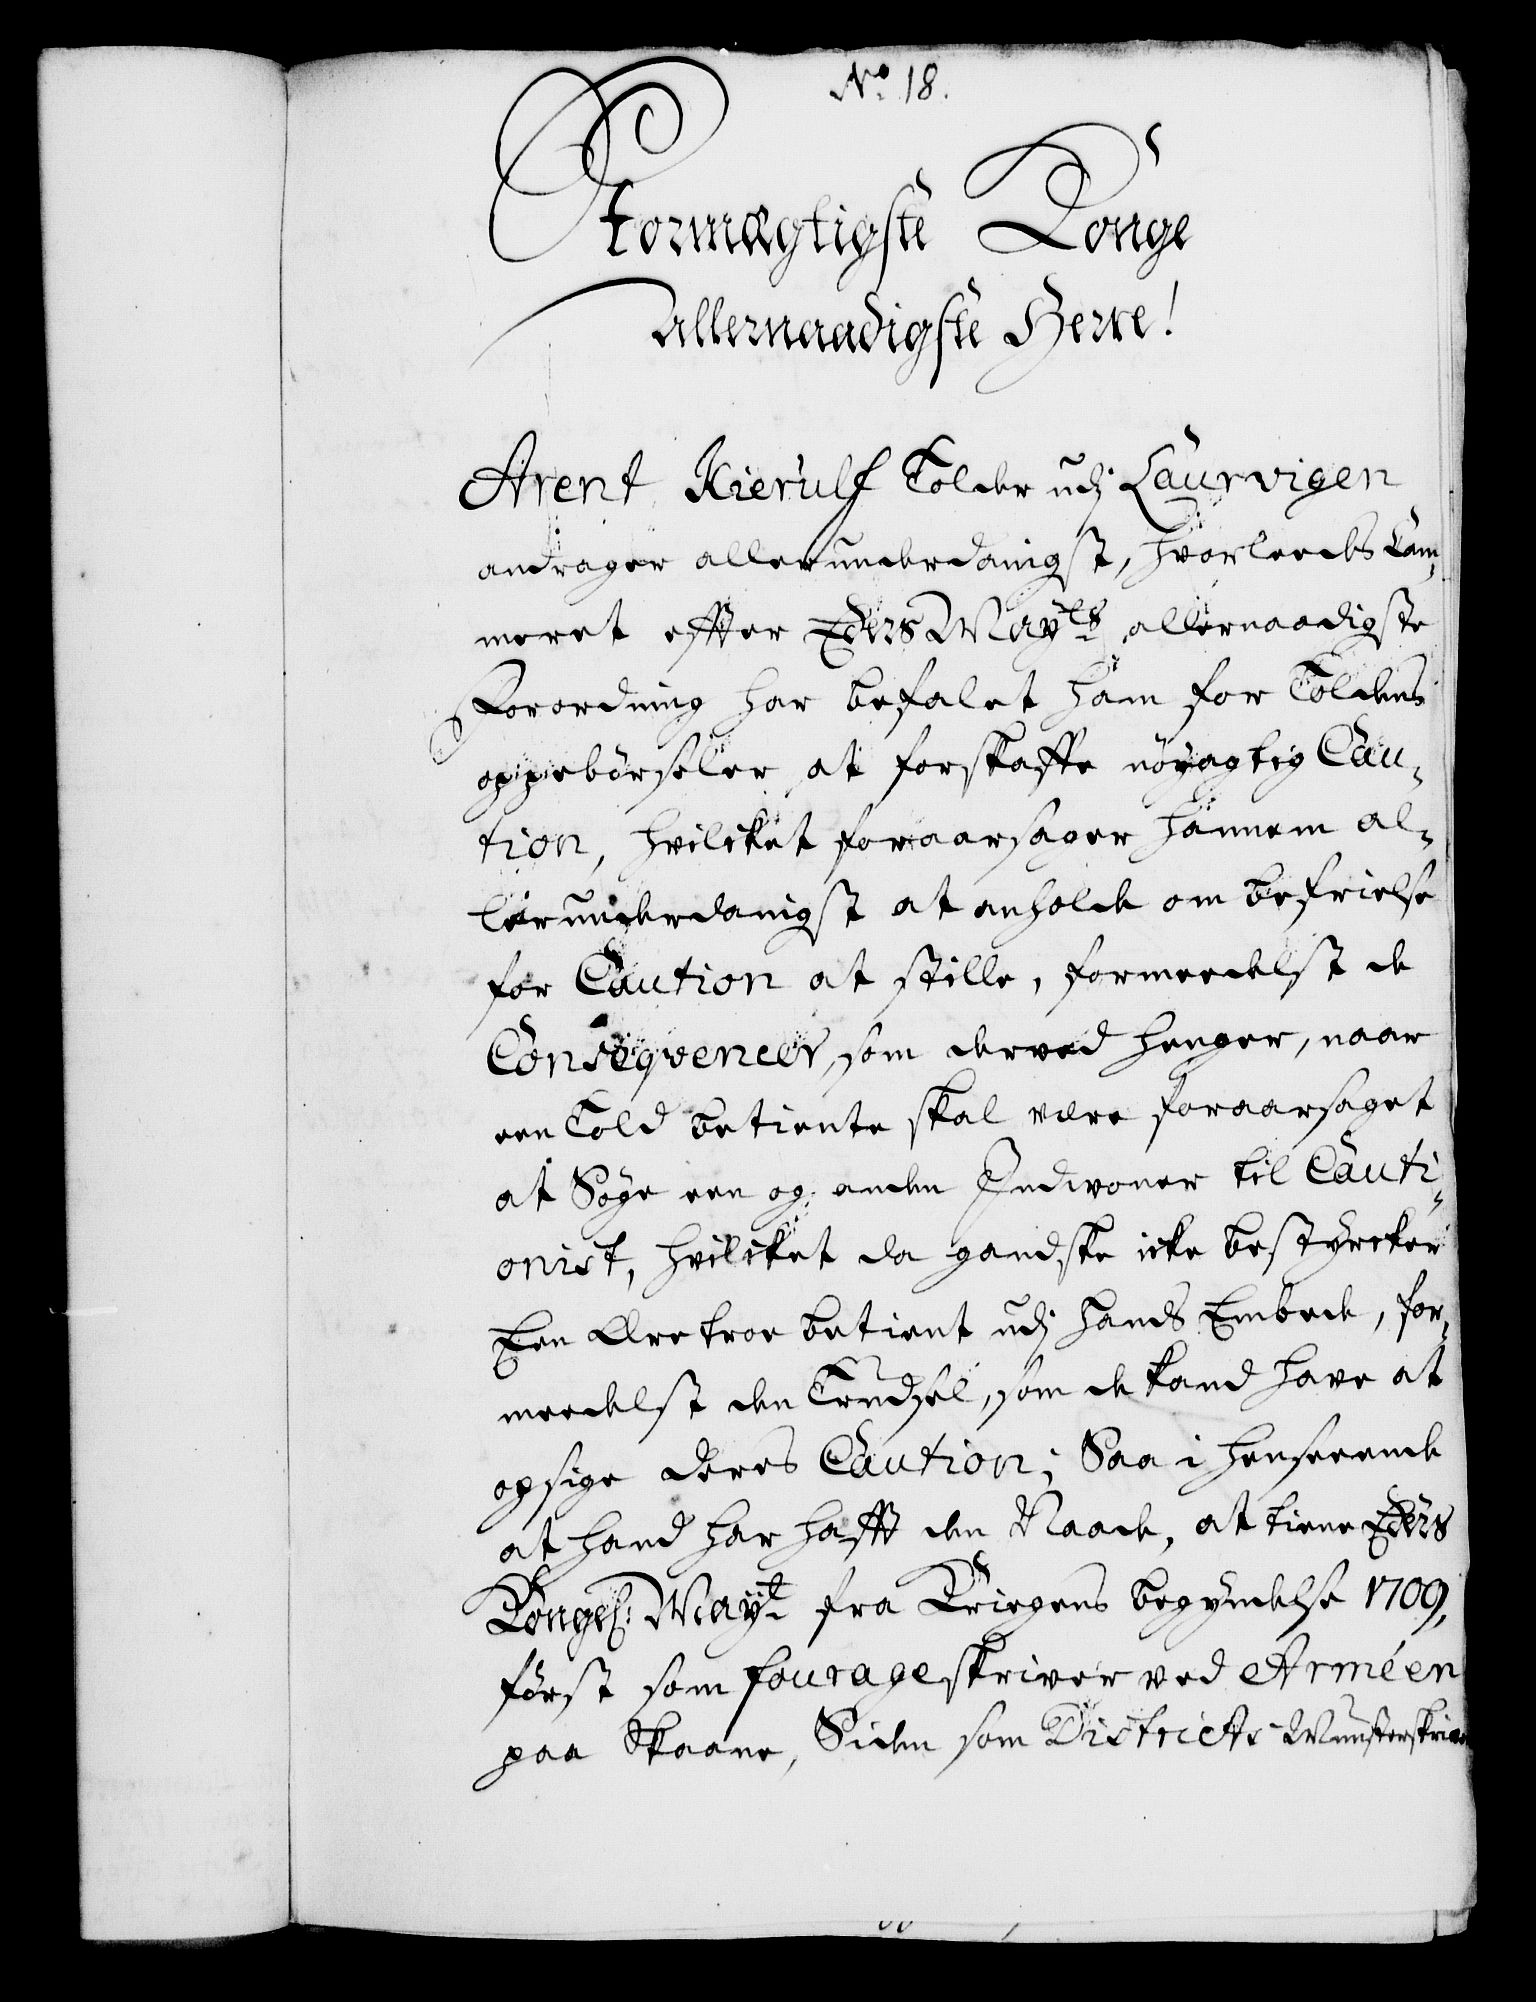 No 18.
Stormægtigste Konge
Allernaadigste Herre!
Arent Kierulf Tolder udj Laurvigen
andrager allerunderdanigst, hvorleedes Cam„
meret effter Eders Mayts allernaadigste
Forordning har befalet ham for Toldens
oppebörseler at forskaffe nöyagtig Cau„
tion, hvilcket foraarsager hannem al„
lerunderdanigst at anholde om befrielse
for Caution at stille, formeedelst de
Conseqvencer, som derved henger, naar
een Told betiente skal være foraarsaget
at Söge een og anden Indvoner til Cauti„
onist, hvilcket da gandske icke bestyrcker
Een Ære troe betient udj hands Embede, for„
meedelst den Trudsel, som de kand have at
opsige deres Caution; Saa i henseende
at hand har hafft den Naade, at tiene Eders
Kongel: Mayt fra Kriegens begyndelse 1709,
först som fourageskriver ved Arméen
paa Skaane, Siden som Districts Munsterskriver